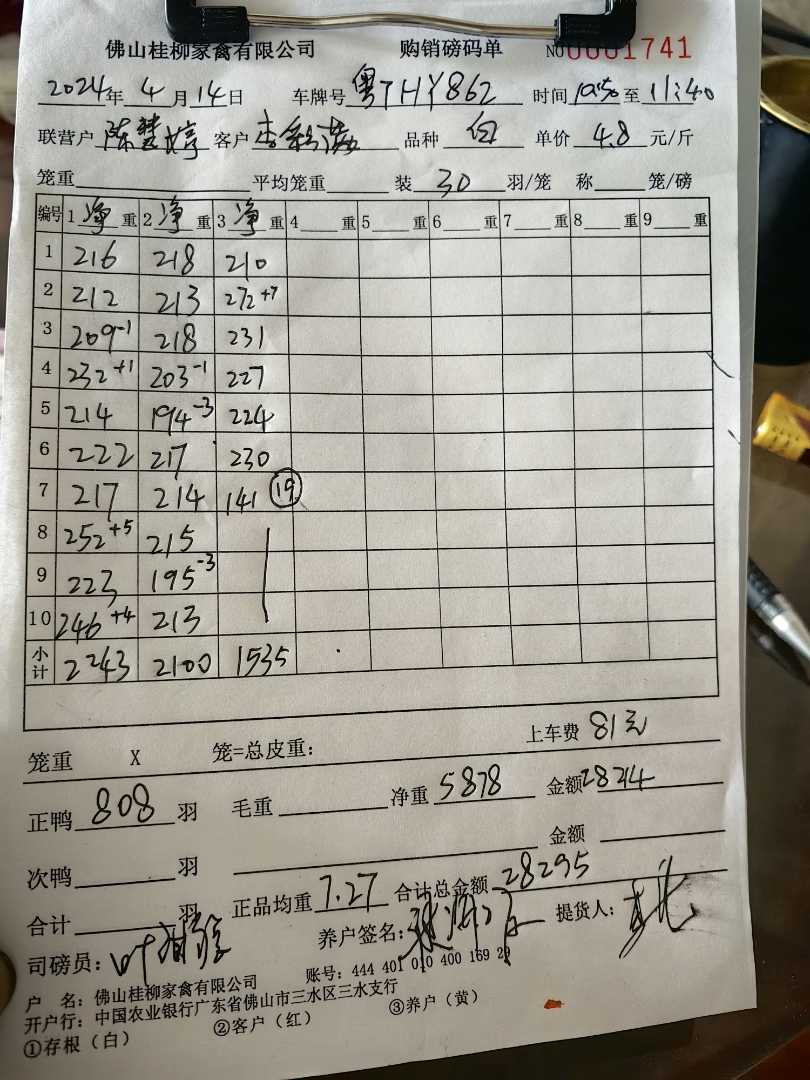 佛山桂柳家禽有限公司 购销磅码单 NO 0001741
2024年 4 月 14 日 车牌号 粤THY862 时间 10:50 至 11:40
联营户 陈慧婷 客户 李 品种 白 单价 4.8 元/斤
笼重 平均笼重 装 30 羽/笼 称 笼/磅
编号 1 净 重 2 净 重 3 净 重 4 重 5 重 6 重 7 重 8 重 9 重
1 216 218 210
2 212 213 272+7
3 209-1 218 231
4 232+1 203-1 227
5 214 194-3 224
6 222 217 230
7 217 214 141 19
8 252+5 215
9 223 195-3
10 246+4 213
小计 2243 2100 1535
笼重 X 笼=总皮重: 上车费 81元
正鸭 808 羽 毛重 净重 5878 金额 28214
次鸭 羽 金额
合计 羽 正品均重 7.27 合计总金额 28295
司磅员: 叶 养户签名: 提货人:
户 名: 佛山桂柳家禽有限公司 账号: 444 401 010 400 169 29
开户行: 中国农业银行广东省佛山市三水区三水支行
①存根(白) ②客户(红) ③养户(黄)